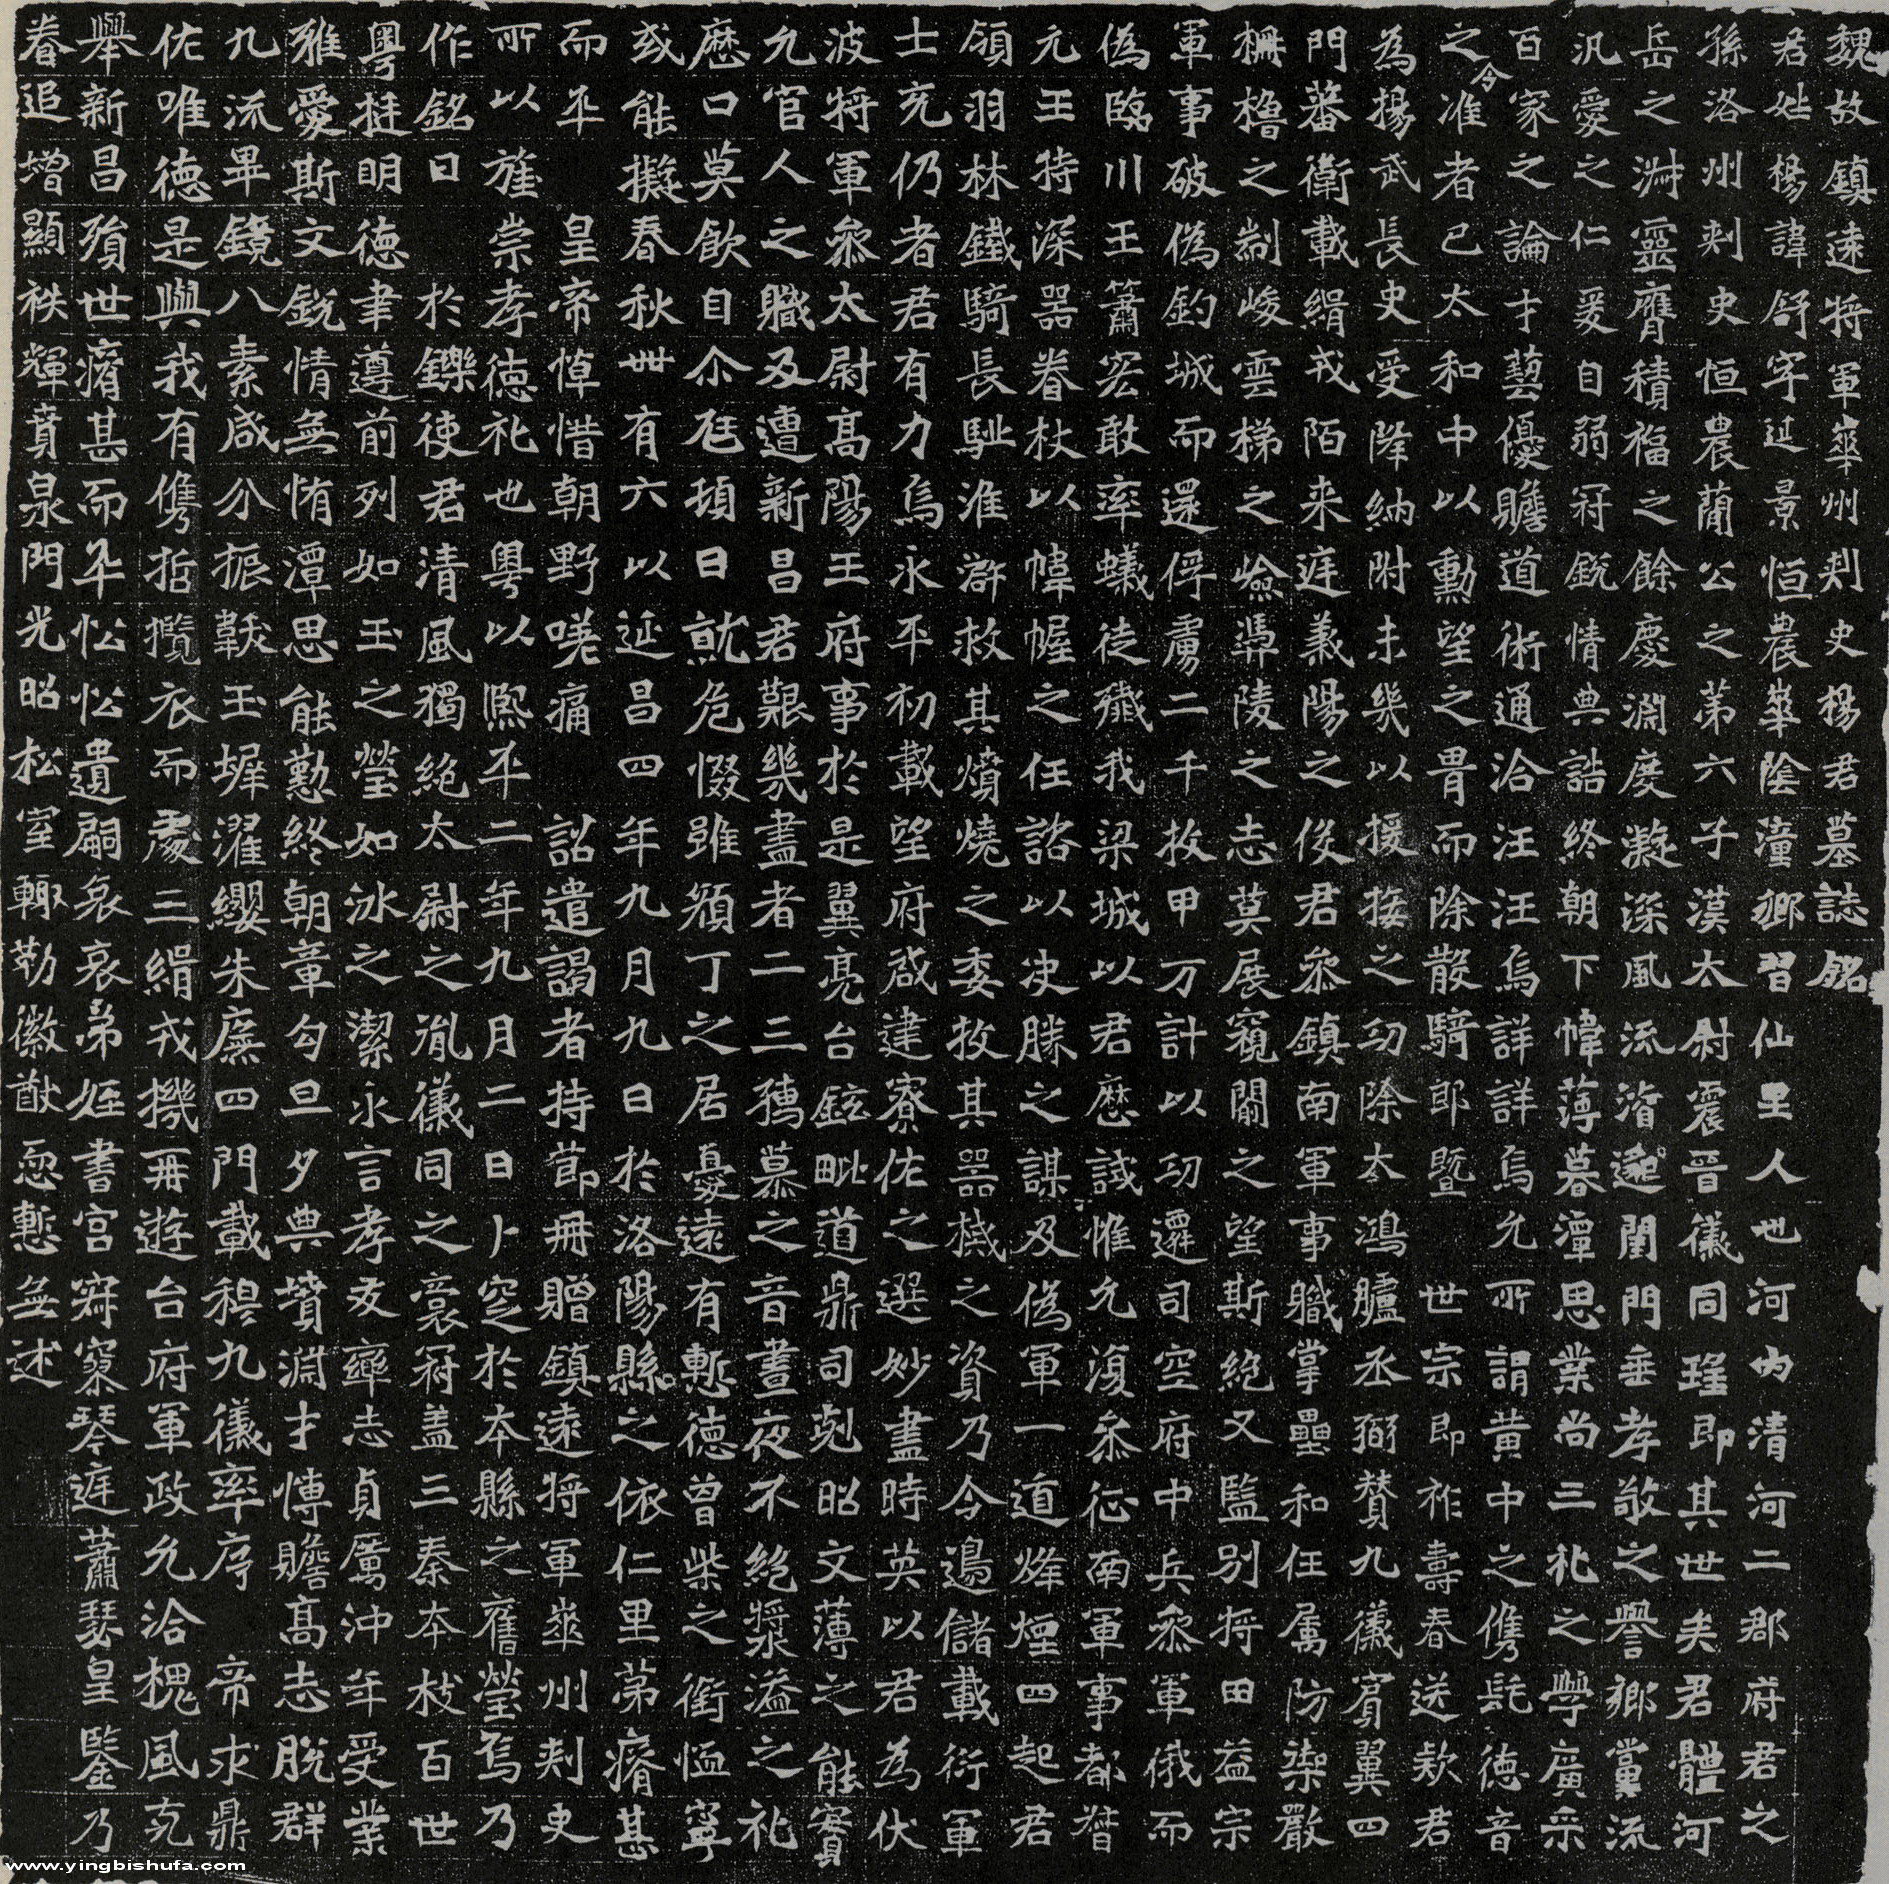 魏故鎮遠將軍華州刺史楊君墓誌銘
君姓楊諱舒字延景恒農華陰潼鄉習仙里人也河內清河二郡府君之
孫洛州刺史恒農蕳公之第六子漢太尉震晉儀同瑤即其世矣君體河
岳之渊靈膺積福之餘慶淵度凝深風流潛邈閨門垂孝敬之譽鄉黨流
汎愛之仁爰自弱冠銳情典誥終朝下幃薄暮潭思業尚三礼之學廣采
百家之論才藝優贍道術通洽汪汪焉詳詳焉允所謂黄中之雋髦德音
之准令者已太和中以勳望之胄而除散騎郎暨世宗即祚壽春送款君
為揚武長史受降納附未幾以援接之功除太鴻臚丞弼賛九儀賓翼四
門蕃衛載緝戎陌来庭義陽之俊君參鎮南軍事職掌壘和任属防禦嚴
柵櫓之制峻雲梯之嶮馮陵之志莫展窺闚之望斯絶又監別將田益宗
軍事破偽釣城而還俘虜二千收甲万計以功遷司空府中兵參軍俄而
偽臨川王簫宏敢率蟻徒殲我梁城以君歷試惟允復參征南軍事都督
元王特深器眷杖以幃幄之任諮以决勝之謀及偽軍一道烽煙四起君
領羽林鐵騎長馳淮澨救其燌燒之委收其器械之資乃今邊儲載衍軍
士充仍者君有力焉永平初載望府啟建寮佐之選妙盡時英以君為伏
波將軍參太尉高陽王府事於是翼亮台鉉毗道鼎司剋昭文薄之能實
允官人之職及遭新昌君艱幾盡者二三孺慕之音晝夜不絶漿溢之礼
歷口莫飲自尒尫頓日就危惙雖顏丁之居憂遠有慙德曾柴之銜恤寧
或能擬春秋卌有六以延昌四年九月九日於洛陽縣之依仁里第瘠甚
而卒皇帝悼惜朝野嗟痛詔遣謁者持節冊贈鎮遠將軍華州刺史
所以旌崇孝德礼也粤以熙平二年九月二日卜窆於本縣之舊塋焉乃
作銘曰於鑠使君清風獨絶太尉之胤儀同之裔冠盖三秦本枝百世
粤挺明德聿遵前列如玉之瑩如冰之潔永言孝友率志貞厲沖年受業
雅愛斯文銳情無怲潭思能懃終朝章句旦夕典墳淵才博贍高志脫群
九流畢鏡八素咸分振韍玉墀濯纓朱廡四門載穆九儀率序帝求鼎
佐唯德是與我有雋哲攬衣而處三緝戎機再遊台府軍政允洽槐風克
舉新昌殞世瘠甚而卒忪忪遺嗣哀哀弟姪書宮寂寥琴庭蕭瑟皇鑒乃
眷追增顯袟輝賁泉門光昭松室輙勒徽猷恧慙無述
www.yingbishufa.com